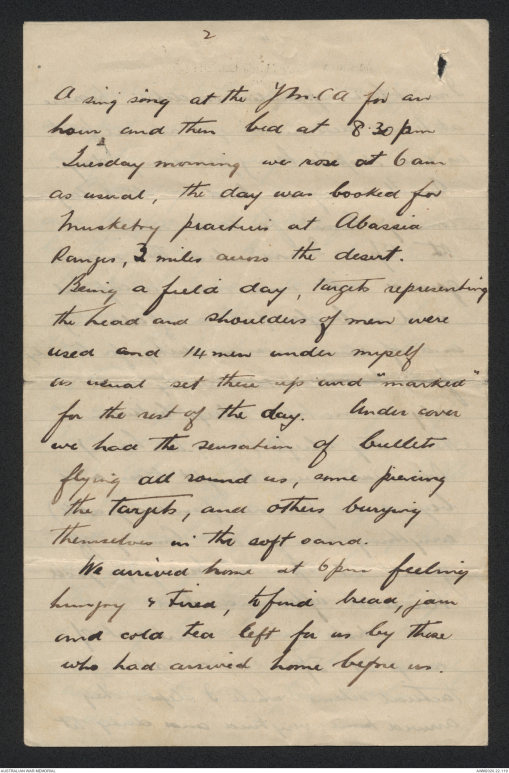 2
A sing song at the YMCA for an
hour and then bed at 8.30 pm
Tuesday morning we rose at 6 am
as usual, the day was booked for
Musketry practices at Abassia
Ranges, 3 miles across the desert.
Being a field day, targets representing
the head and shoulders of men were
used and 14 men under myself
as usual set these up and "marked"
for the rest of the day. Under cover
we had the sensation of bullets
flying all round us, some piercing
the targets, and others burying
themselves in the soft sand.
We arrived home at 6 pm feeling
hungry & tired, to find bread, jam
and cold tea left for us by those
who had arrived home before us.
AUSTRALIAN WAR MEMORIAL